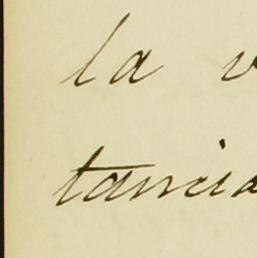 la v
tancia